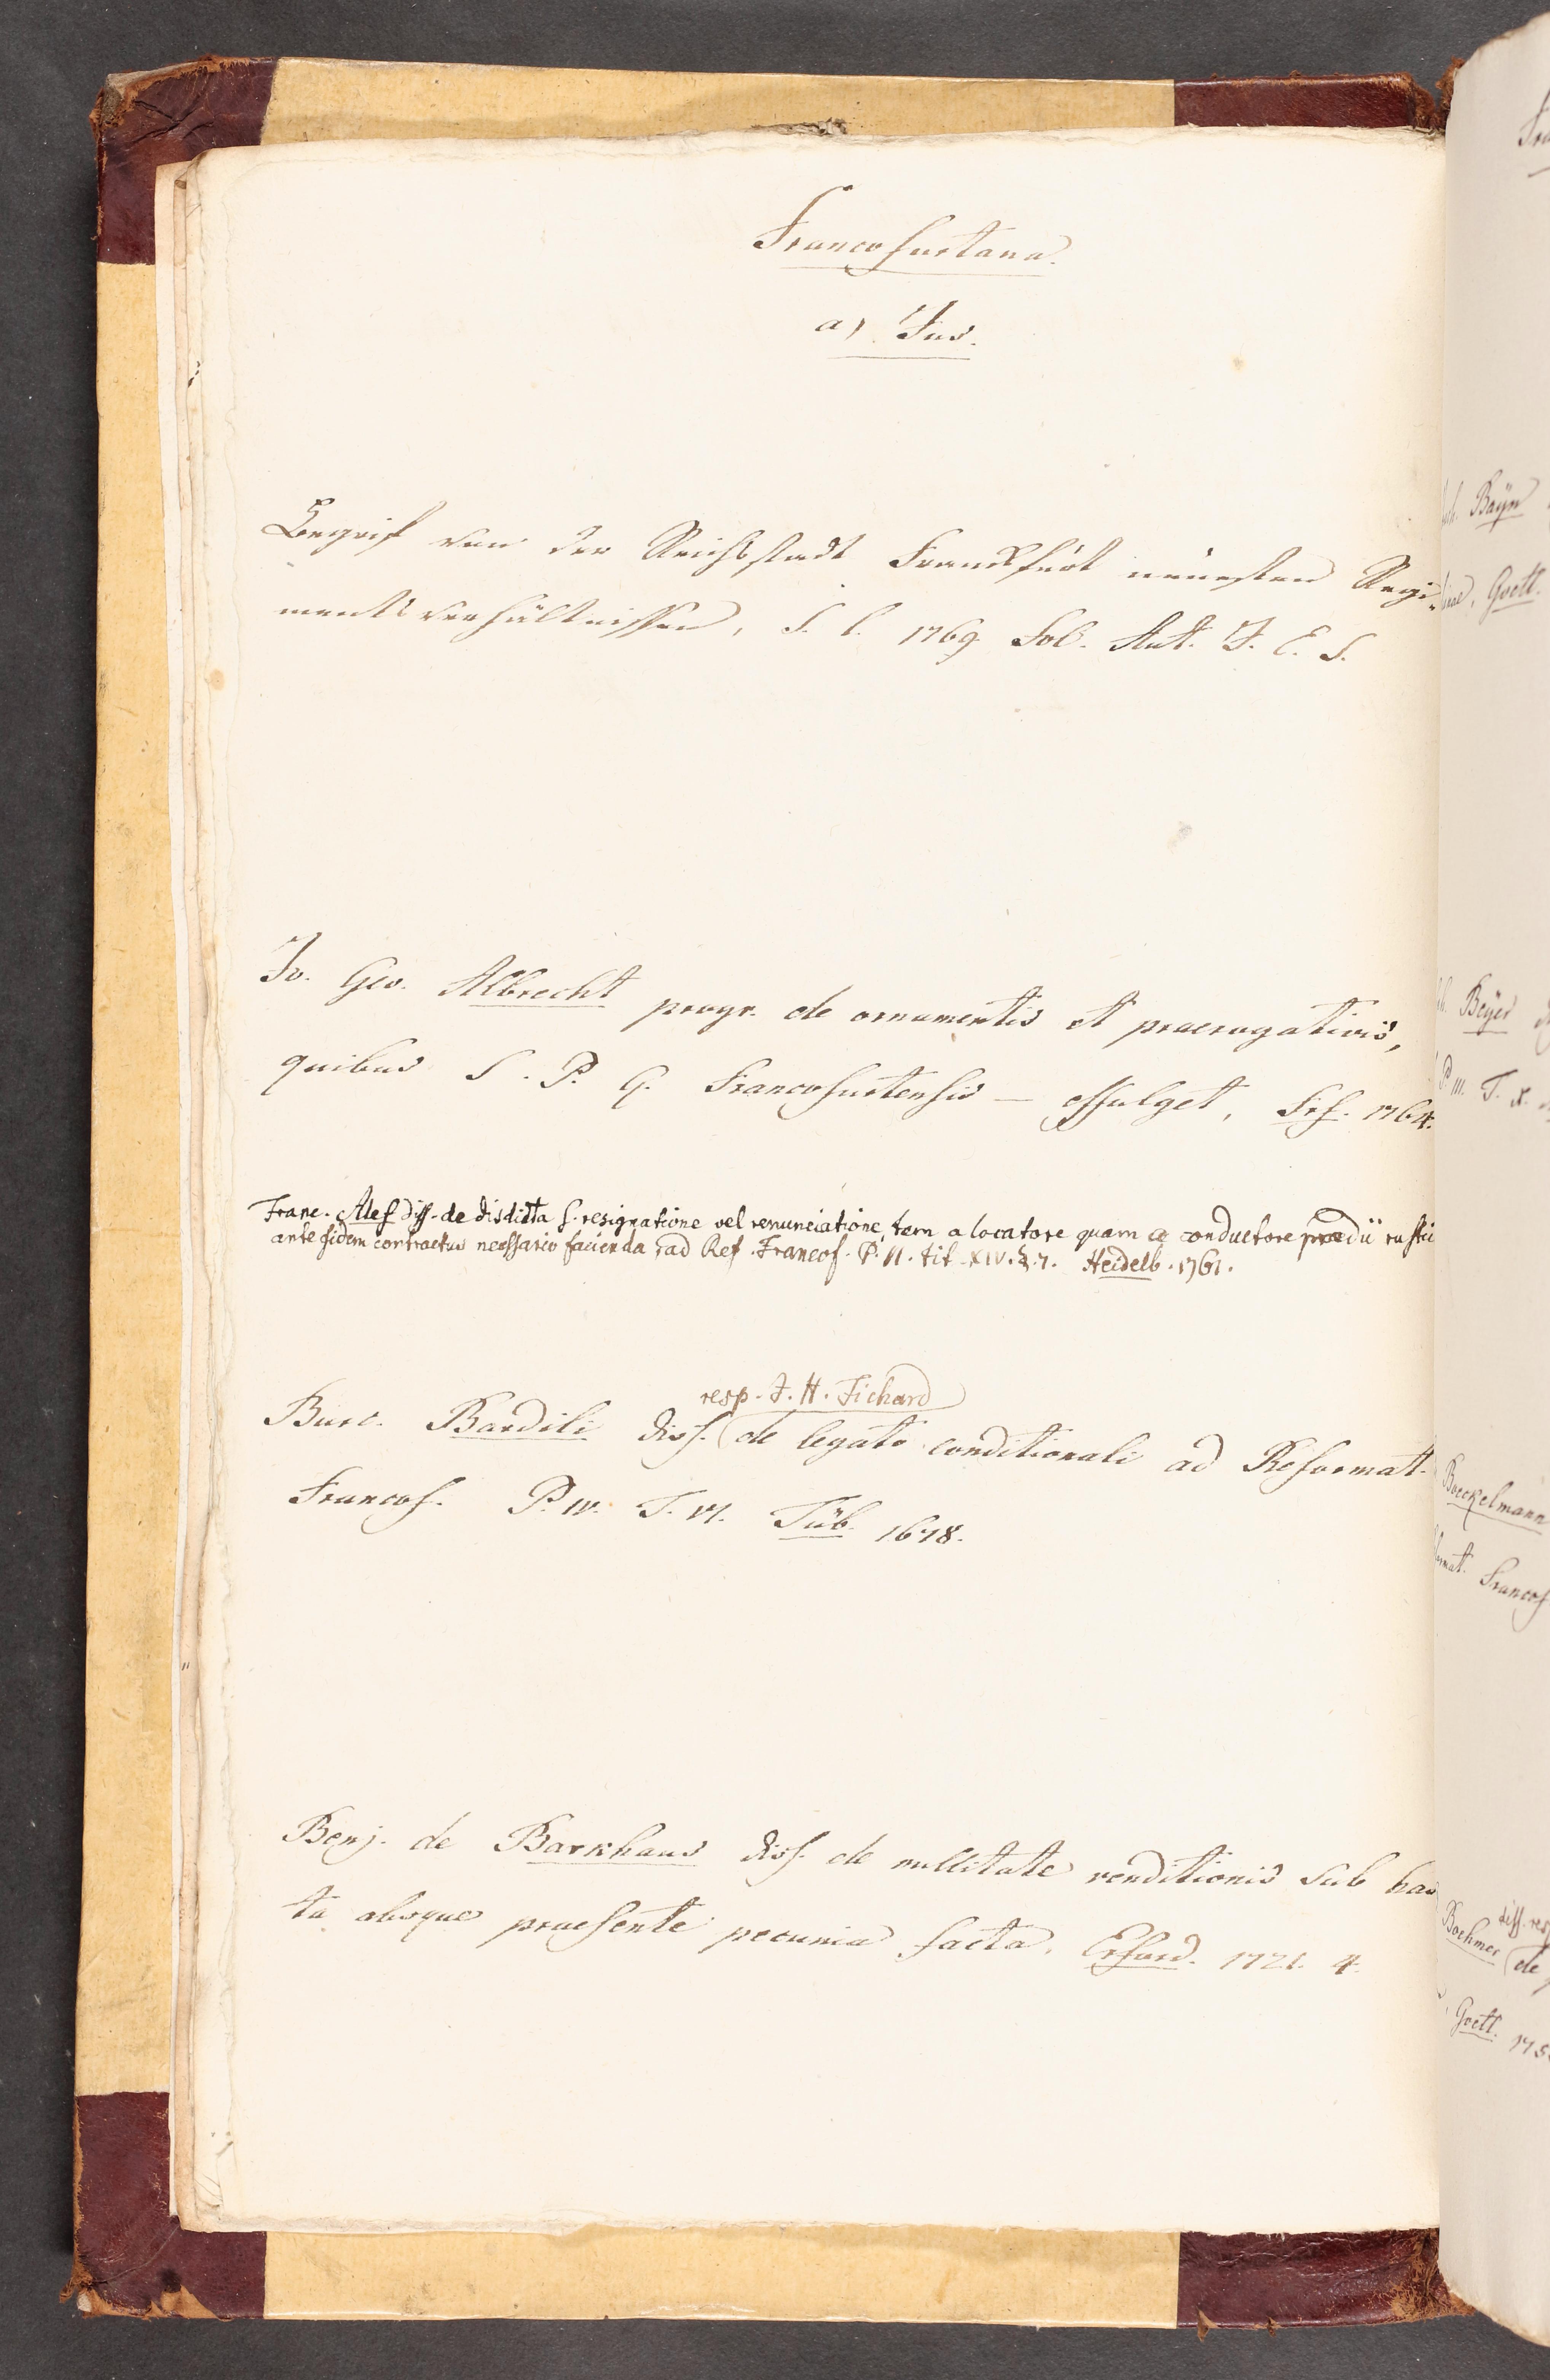 Francofurtana.
a) Jus.
Begrif von der Reichsstadt Franckfurt neuesten Regi-
mentsverhältnissen, S. l. 1769 Fol. Aut. J. E. S.
Jo. Geo. Albrecht progr. de ornamentis et praerogativis,
quibus S. P. Q. Francofurtensis — effulget, Frf. 1764.
Franc. Alef diss. de disdicta s. resignatione vel renunciatione, tam a locatore quam a conductore praedii rustici
ante fidem contractus necessario facienda, ad Ref. Francof. P. II. tit. XIV. §. 7. Heidelb. 1761.
resp. J. H. Fichard
Burc. Bardili diss. (de legato conditionali ad Reformat.
Francof. P. IV. T. VI. Tüb. 1678.
Benj. de Barkhaus diss. de nullitate venditionis sub has
ta absque praesente pecunia facta. Erford. 1721. 4.
Bayer
Goett.
Beyer
P III. T. X.
Boeckelmann
Francof
diss. resp
Boehmer (de
Goett. 175